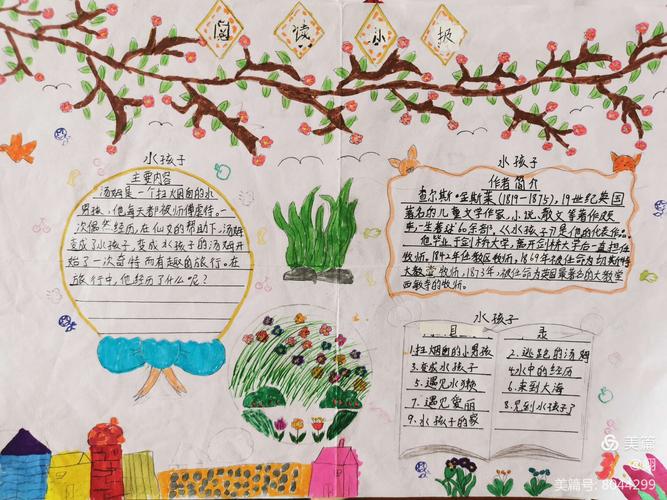 阅读小报
水孩子
主要内容
汤姆是一个扫烟囱的小
男孩,他每天都被师傅虐待。一
次偶然经历,在仙女的帮助下,汤姆
变成了水孩子,变成水孩子的汤姆开
始了一次奇特而有趣的旅行。在
旅行中,他经历了什么呢?
水孩子
作者简介
查尔斯·金斯莱(1819-1875),19世纪英国
著名的儿童文学作家,小说、散文等著作颇
丰,一生著述60余部,《水孩子》是他的代表作。
他毕业于剑桥大学,离开剑桥大学后一直担任
牧师。1842年任教区牧师,1869年被任命为切斯特
大教堂牧师,1873年,被任命为英国最著名的大教堂
西敏寺的牧师。
水孩子
目 录
1.扫烟囱的小男孩
2.逃跑的汤姆
3.变成水孩子
4.水中的经历
5.遇见水獭
6.来到大海
7.遇见爱丽
8.见到水孩子了
9.水孩子的家
美篇
美篇号:8044299